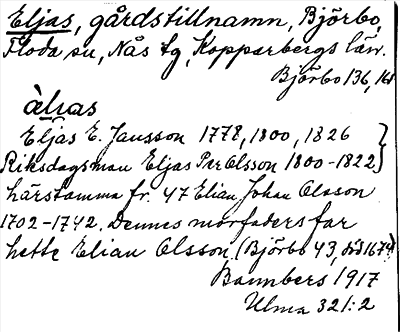 Eljas, gårdstillnamn, Björbo,
Floda sn, Nås tg, Kopparbergs län.
Björbo 136, 161
àl̨ias
Eljas E. Jansson 1778, 1800, 1826
Riksdagsman Eljas Per Olsson 1800-1822
härstamma fr. 47 Elian Johan Olsson
1702-1742. Dennes morfaders far
hette Elian Olsson, (Björbo 43, död 1674)
Bannbers 1917
Ulma 321:2